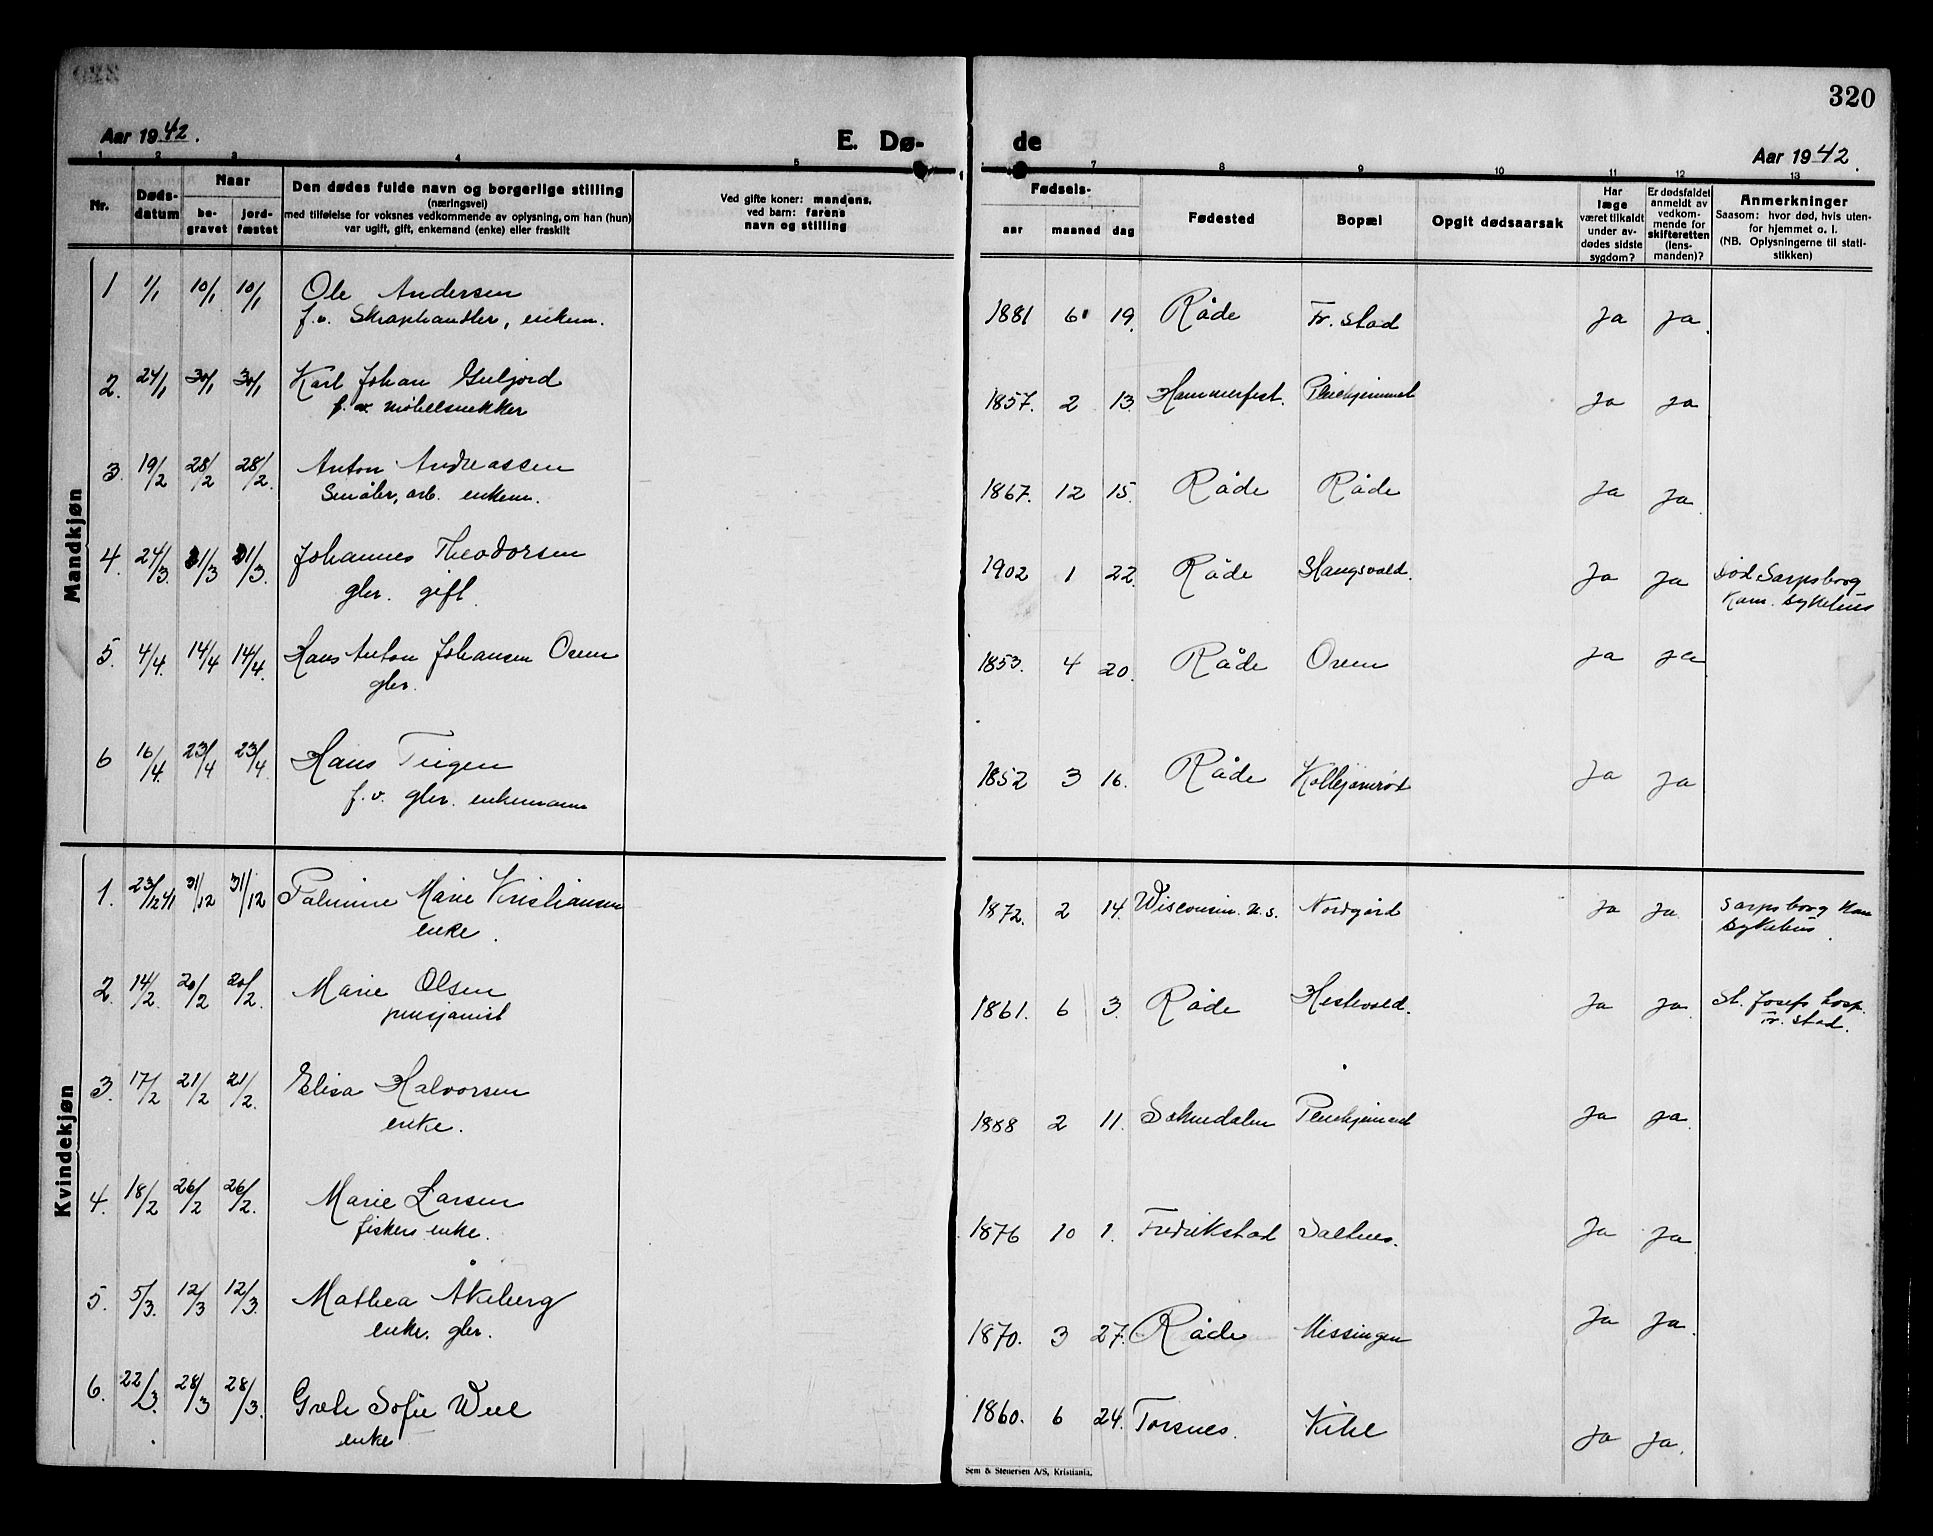 320
Aar 1942.
E. Dø-
de
Aar 1942.
1 2 3 4 5 7 8 9 10 11 12 13
Nr.
Døds-
datum
Naar
be-
gravet
jord-
fæstet
Den dødes fulde navn og borgerlige stilling
(næringsvei)
med tilføielse for voksnes vedkommende av oplysning, om han (hun)
var ugift, gift, enkemand (enke) eller fraskilt
Ved gifte koner: mandens,
ved barn: farens
navn og stilling
Fødsels-
aar
maaned
dag
Fødested
Bopæl
Opgit dødsaarsak
Har
læge
været tilkaldt
under av-
dødes sidste
sygdom?
Er dødsfaldet
anmeldt av
vedkom-
mende for
skifteretten
(lens-
manden)?
Anmerkninger
Saasom: hvor død, hvis uten-
for hjemmet o. l.
(NB. Oplysningerne til stati-
stikken)
Mandkjøn
1 1/1 10/1 10/1 Ole Andersen 1881 6 19. Råde Fr. stad Ja Ja.
f.v. Skraphandler, enkem.
2. 24/1 30/1 30/1 Karl Johan Guljord 1857. 2 13. Hammerfest. Pleiehjemmet Ja Ja
f.v. møbelsnekker
3. 19/2 28/2 28/2. Anton Andreassen 1867. 12 15. Råde Råde Ja Ja.
Småbr. arb. enkem.
4. 24/3. 31/3 31/3. Johannes Theodorsen 1902 1 22. Råde Slangsvold. Ja Ja død Sarpsborg
gbr. gift. Kom. sykehus
5. 4/4. 14/4 14/4. Hans Anton Johansen Oven 1853. 4 20. Råde Oven Ja Ja
gbr.
6 16/4. 23/4 23/4. Hans Teigen 1852 3 16. Råde Ja Ja
f.v. gbr. enkemann
Kvindekjøn
1. 23/12 41 31/12 31/12 Palmine Marie Kristiansen 1872. 2 14. Wisconsin. U.S. Nordgård Ja Ja Sarpsborg Kom
enke. Sykehus.
2. 14/2. 20/2 20/2. Marie Olsen 1861. 6 3. Råde Hestevold. Ja Ja. St. Josefs hosp.
pensjonist Fr. stad.
3. 17/2 21/2 21/2. Elisa Halvorsen 1888 2 11. Soknedalen Pleiehjemmet Ja Ja.
enke.
4. 18/2 26/2 26/2. Marie Larsen 1876 10 1. Fredrikstad Saltnes. Ja Ja.
fiskers enke.
5. 5/3. 12/3 12/3. Mathea Åkeberg 1870. 3 27. Råde Missingen Ja Ja.
enke. gbr.
6. 22/3. 28/3 28/3. Sofie 1860. 6 24. Torsnes. Kihl Ja Ja.
enke
Sem & Stenersen A/S, Kristiania.